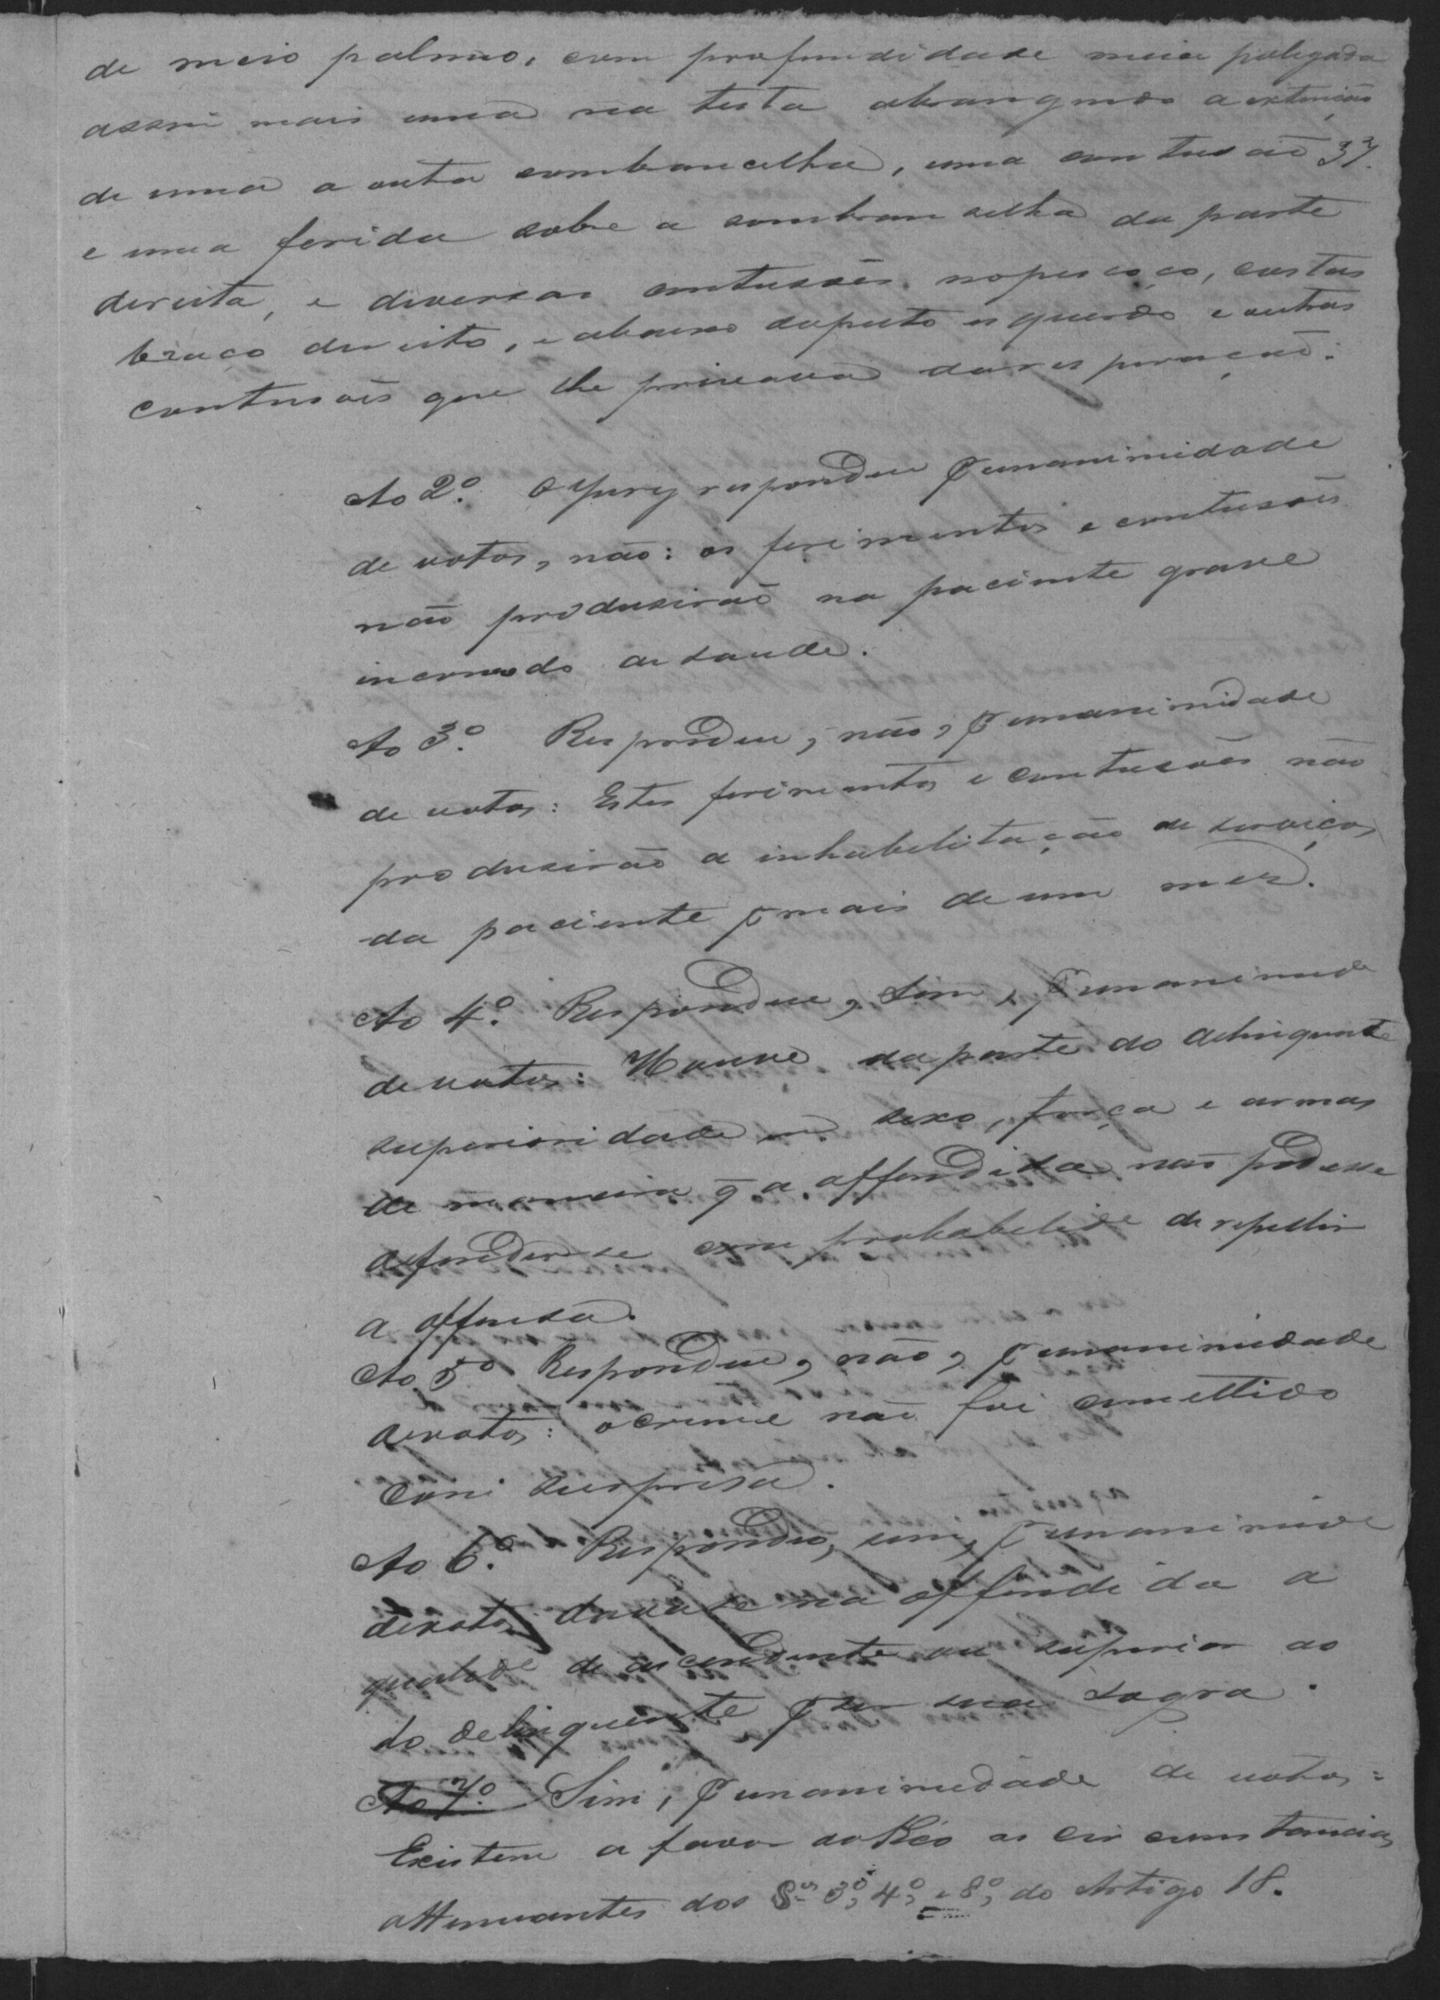 de meio palmo, com profundidade meia polegada
assim mais uma na testa abrangendo a extenção
de uma a outra sombrancelha, uma contusão 37
e uma ferida sobre a sombrancelha da parte
direita, e diversas contusões no pescoço, costas
braço direito, e abaixo do peito esquerdo e outras
contusões que lhe privava da respiração.
Ao 2º. O Jury respondeu p unanimidade
de votos, não: os ferimentos e contusões
não produsirão na paciente grave
incomodo de saude.
Ao 3º. Respondeu, não, p unanimidade
de votos: Estes ferimentos e contusões não
produsirão a inhabelitação de serviços
da paciente p mais de um mez.
Ao 4º. Respondeu, Sim, p unanimide
de votos: Houve da parte do delinquente
superioridade em sexo, força e armas
de maneira q a offendida não podesse
defender-se com probabelide de repellir
a offensa.
Ao 5º Respondeu, não, p unanimidade
de votos: o crime não foi comettido
com surpresa.
Ao 6º. Respondeo, sim, p unanimide
de votos dava-se na offendida a
qualide de ascendente ou superior ao
do delinquente p ser sua sogra.
Ao 7º. Sim, p unanimidade de votos:
Existem a favor do Réo as circumstancias
attenuantes dos §os 3º, 4º, e 8º, do Artigo 18.